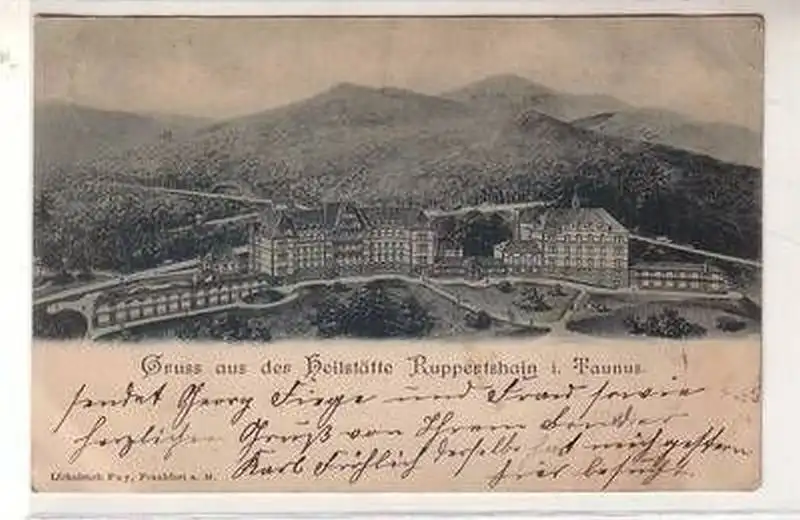 Gruss aus der Heilstätte Ruppertshain i. Taunus.
sendet Georg Fiege und Frau sowie
herzlichen Gruß von Ihrem Bruder
Karl Fröhlich derselbe hat mich gestern
hier besucht.
Lichtdruck Puy, Frankfurt a. M.